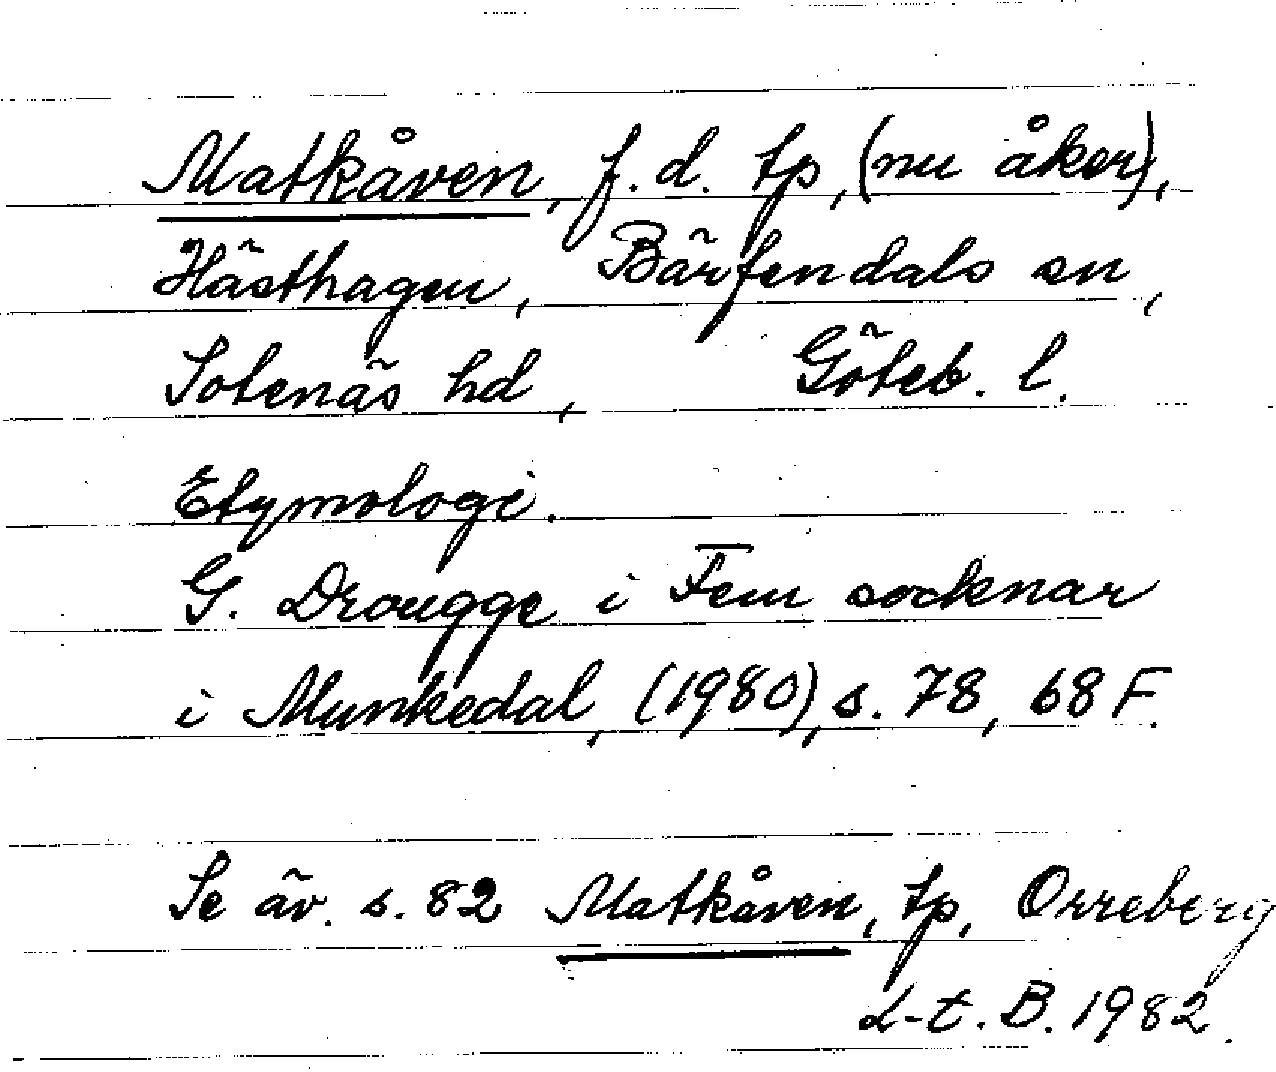 Matkåven, f. d. tp, (nu åker),
Hästhagen, Bärfendals sn,
Sotenäs hd, Göteb. l.
Etymologi.
G. Drougge i Fem socknar
i Munkedal, (1980), s. 78, 68 F.
Se äv. s. 82 Matkåven, tp, Orreberg
L-t. B. 1982.